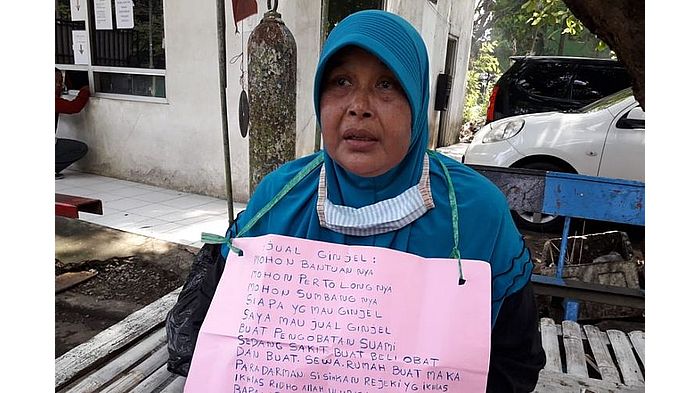 JUAL GINJEL :
MOHON BANTUAN NYA
MOHON PERTOLONGNYA
MOHON SUMBANG NYA
SIAPA YG MAU GINJEL
SAYA MAU JUAL GINJEL
BUAT PENGOBATAN SUAMI
SEDANG SAKIT BUAT BELI OBAT
DAN BUAT SEWA RUMAH BUAT MAKA
PARA DARMAN SISIHKAN REJEKI YG IKHLAS
IKHLAS RIDHO ALLAH